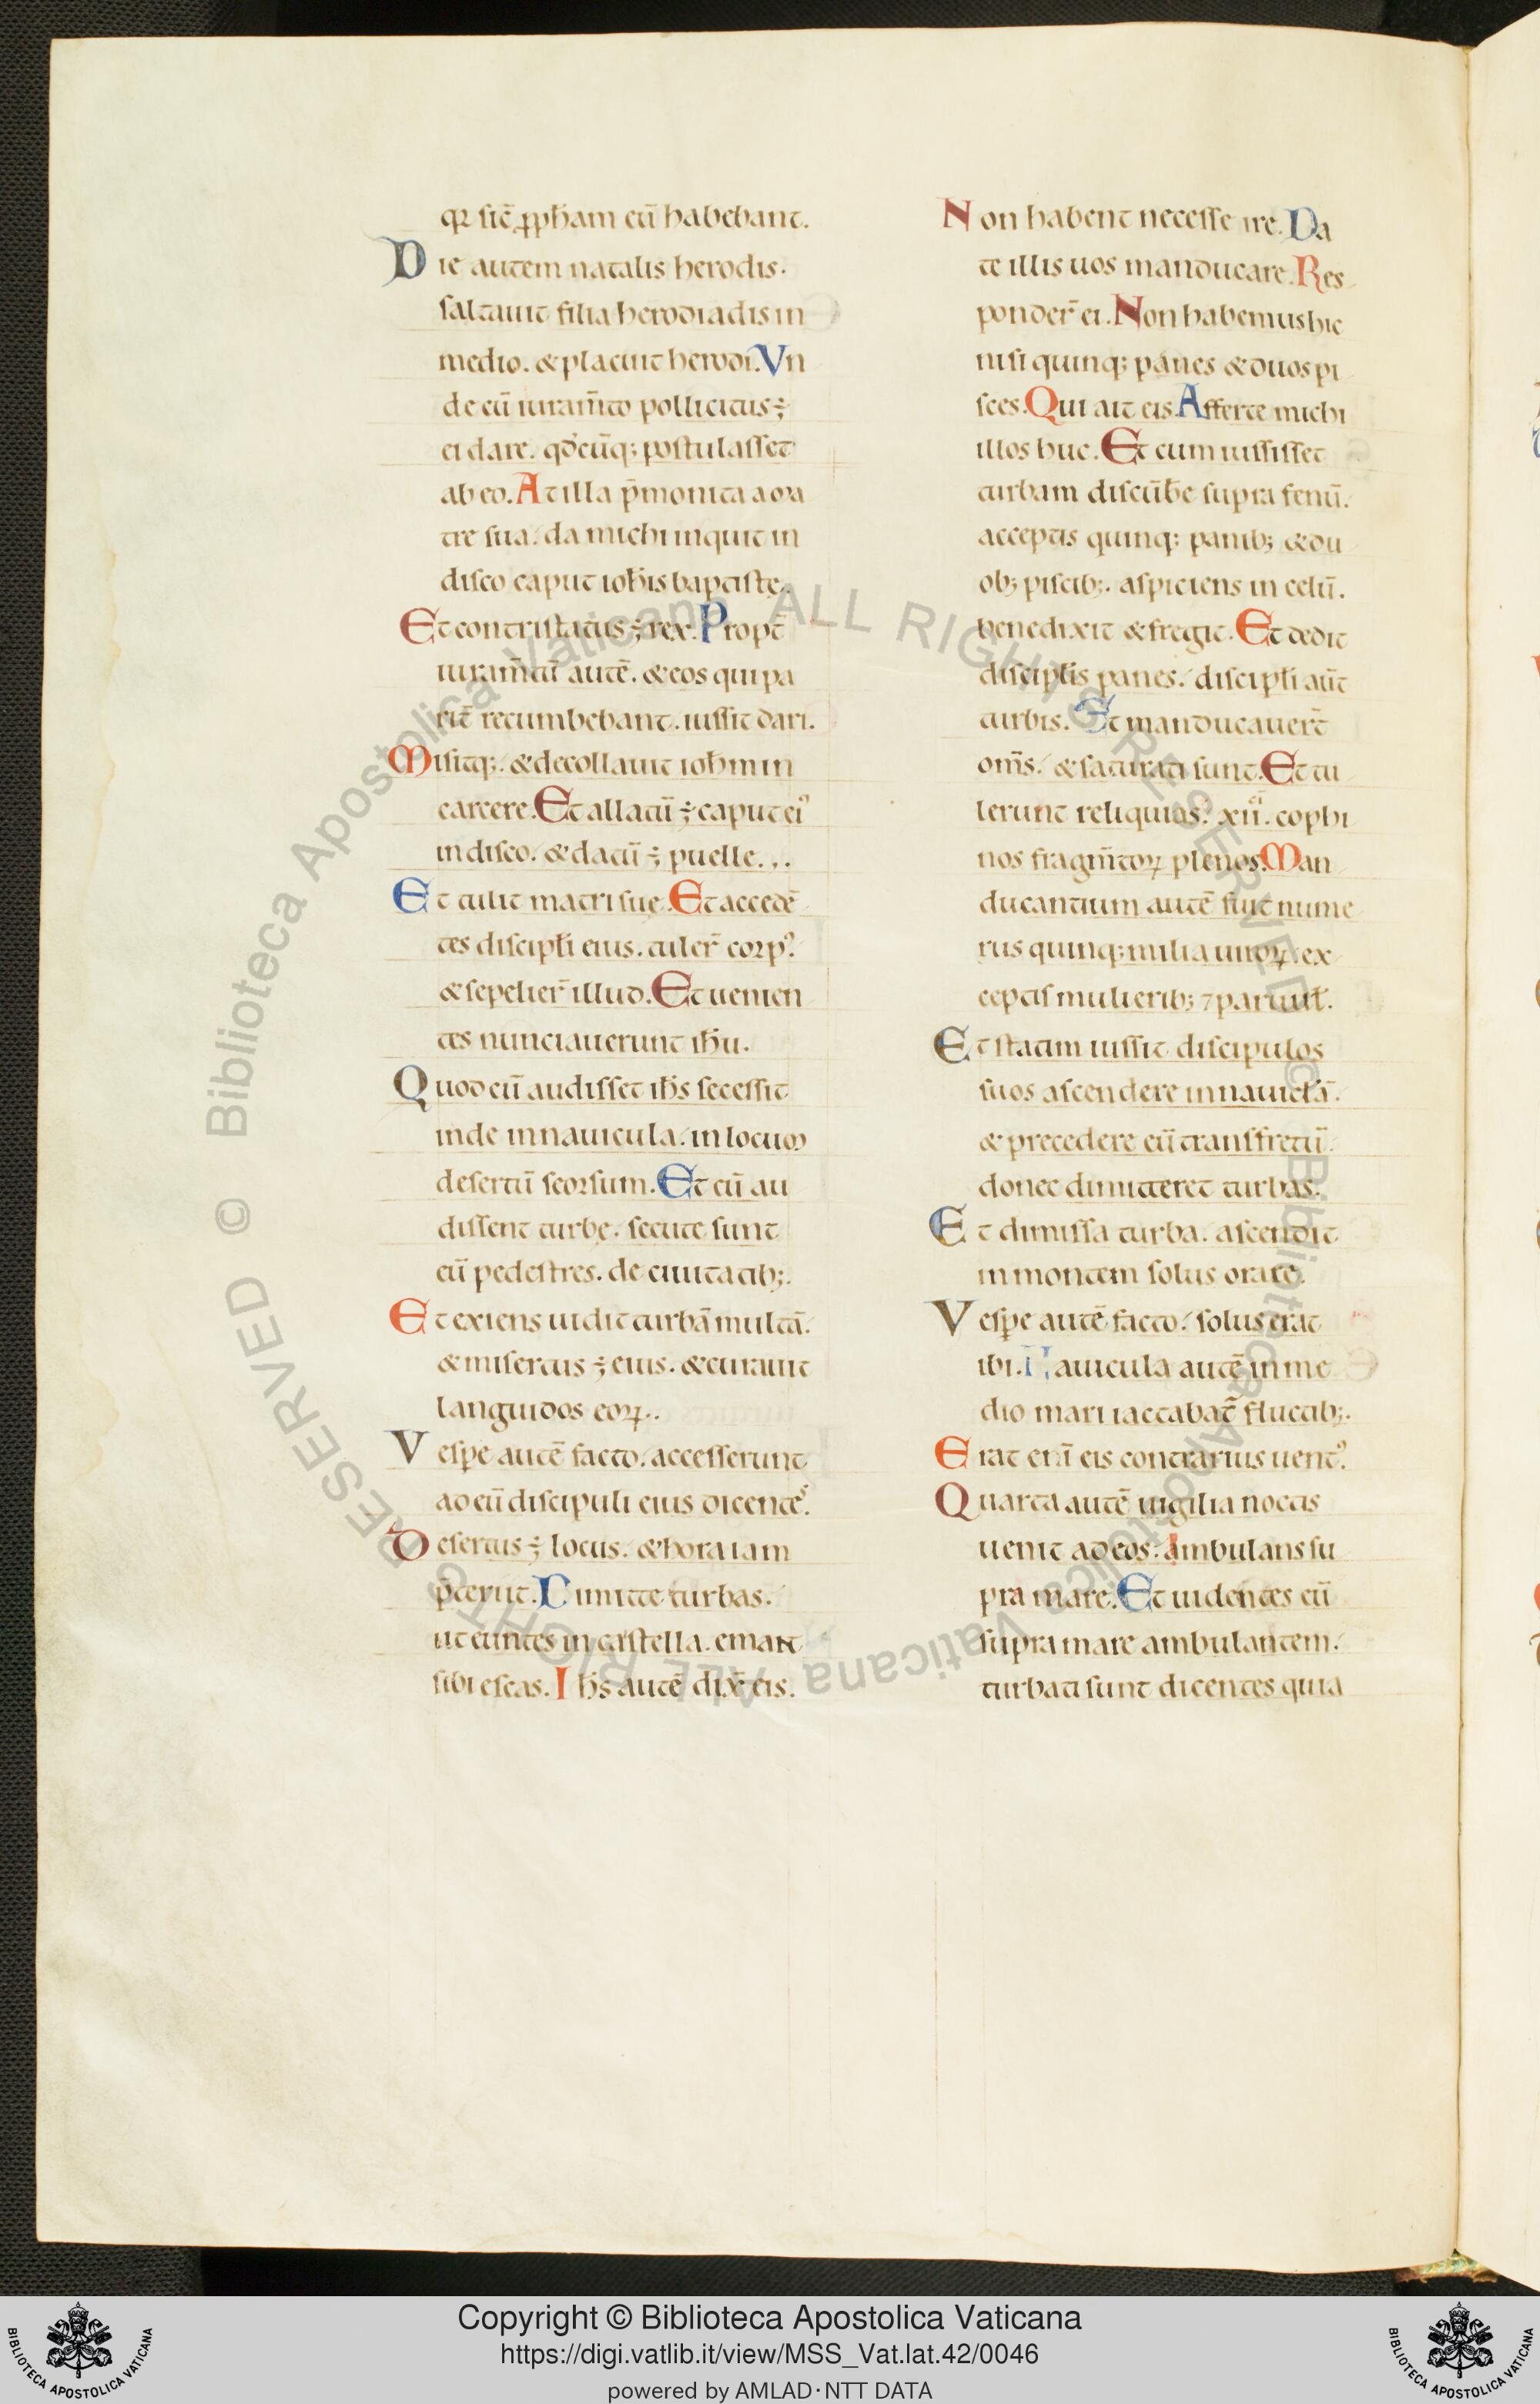 qꝛ sic̄ ꝓph̄am eū habebant.
Die autem natalis herodis.
saltauit filia herodiadis in
medio. & placuit herodi. Vn
de cū iuram̄to pollicitus ÷
ei dare. qd̓cūq; postulasset
ab eo. At illa p̄monita a ma
tre sua. da michi inquit in
disco caput ioh̄is baptiste.
Et contristatus ÷ rex. Propt̄
iuram̄tū autē. & eos qui pa
rit̄ recumbebant. iussit dari.
Misitq;. & decollauit ioh̄m in
carcere. Et allatū ÷ caput ei᾿
in disco. & datū ÷ puelle.
Et tulit matri sue. Et accedē
tes discipł̄i eius. tuler̄ corp᾿.
& sepelier̄ illud. Et uenien
tes nunciauerunt ih̄u.
Quod cū audisset ih̄s secessit
inde in nauicula. in locum
desertū seorsum. Et cū au
dissent turbę. secute sunt
eū pedestres. de ciuitatib;.
Et exiens uidit turbā multā.
& misertus ÷ eius. & curauit
languidos eoꝝ.
Vesꝑe autē facto. accesserunt
ad eū discipuli eius dicentes.
Desertus ÷ locus. & hora iam
p̄terut. Dimitte turbas.
ut euntes in castella. emant
sibi escas. Ih̄s autē dix̄ eis.
Non habent necesse ire. Da
te illis uos manducare. Res
ponder̄ ei. Non habemus hic
nisi quinq; panes & duos pi
sces. Qui ait eis. Afferte michi
illos huc. Et cum iussisset
turbam discūb̄e supra fenū.
acceptis quinq; panib; & du
ob; piscib;. aspiciens in celū.
benedixit & fregit. Et dedit
discipł̄is panes. discipł̄i aūt
turbis. Et manducauer̄t
om̄s. & saturati sunt. Et tu
lerunt reliquias. xii. cophi
nos fragm̄toꝝ plenos. Man
ducantium autē fuit nume
rus quinq; milia uiroꝝ. ex
ceptis mulierib; ⁊ paruuł.
Et statim iussit discipulos
suos ascendere in nauicłā.
& precedere eū transfretū.
donec dimitteret turbas.
Et dimissa turba. ascendit
in montem solus orare.
Vesꝑe autē facto. solus erat
ibi. Nauicula autē in me
dio mari iactabat̄ fluctib;.
Erat enī eis contrarius uent᾿.
Quarta autē uigilia noctis
uenit ad eos. ambulans su
pra mare. Et uidentes eū
supra mare ambulantem.
turbati sunt dicentes quia
© Biblioteca Apostolica Vaticana ALL RIGHTS RESERVED © Biblioteca Apostolica Vaticana ALL RIGHTS RESERVED
Copyright © Biblioteca Apostolica Vaticana
https://digi.vatlib.it/view/MSS_Vat.lat.42/0046
powered by AMLAD·NTT DATA
BIBLIOTECA APOSTOLICA VATICANA
BIBLIOTECA APOSTOLICA VATICANA